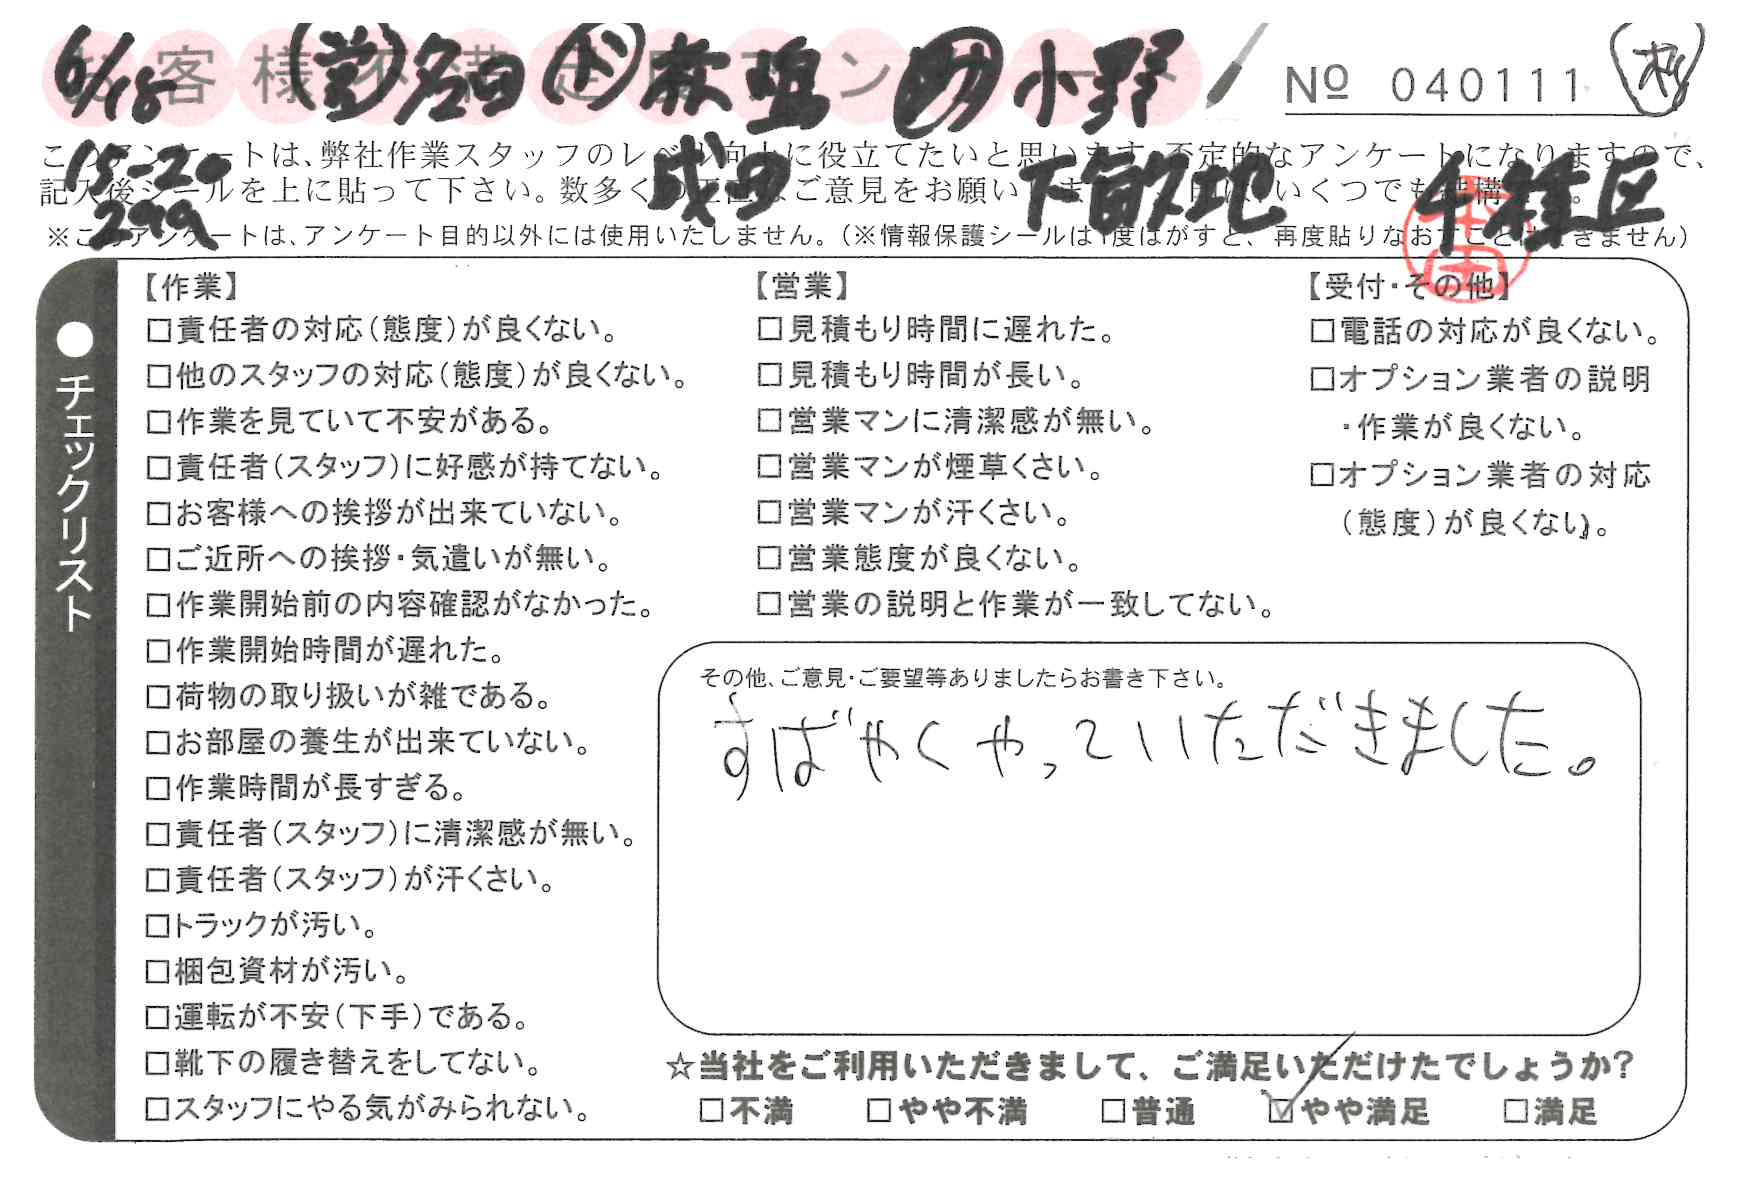 お客様不満足度アンケート
6/18 (営)名西 (ド)森嶋 (助)小野
№ 040111
15-20
成田 下前久地 千種区
このアンケートは、弊社作業スタッフのレベル向上に役立てたいと思います。不定的なアンケートになりますので、
記入後シールを上に貼って下さい。数多くの正直なご意見をお願いします。 印は、いくつでも結構です。
※このアンケートは、アンケート目的以外には使用いたしません。(※情報保護シールは1度はがすと、再度貼りなおすことはできません)
●チェックリスト
【作業】
□責任者の対応(態度)が良くない。
□他のスタッフの対応(態度)が良くない。
□作業を見ていて不安がある。
□責任者(スタッフ)に好感が持てない。
□お客様への挨拶が出来ていない。
□ご近所への挨拶・気遣いが無い。
□作業開始前の内容確認がなかった。
□作業開始時間が遅れた。
□荷物の取り扱いが雑である。
□お部屋の養生が出来ていない。
□作業時間が長すぎる。
□責任者(スタッフ)に清潔感が無い。
□責任者(スタッフ)が汗くさい。
□トラックが汚い。
□梱包資材が汚い。
□運転が不安(下手)である。
□靴下の履き替えをしてない。
□スタッフにやる気がみられない。
【営業】
□見積もり時間に遅れた。
□見積もり時間が長い。
□営業マンに清潔感が無い。
□営業マンが煙草くさい。
□営業マンが汗くさい。
□営業態度が良くない。
□営業の説明と作業が一致してない。
【受付・その他】
□電話の対応が良くない。
□オプション業者の説明
・作業が良くない。
□オプション業者の対応
(態度)が良くない。
その他、ご意見・ご要望等ありましたらお書き下さい。
すばやくやっていただきました。
☆当社をご利用いただきまして、ご満足いただけたでしょうか?
□不満 □やや不満 □普通 ☑やや満足 □満足